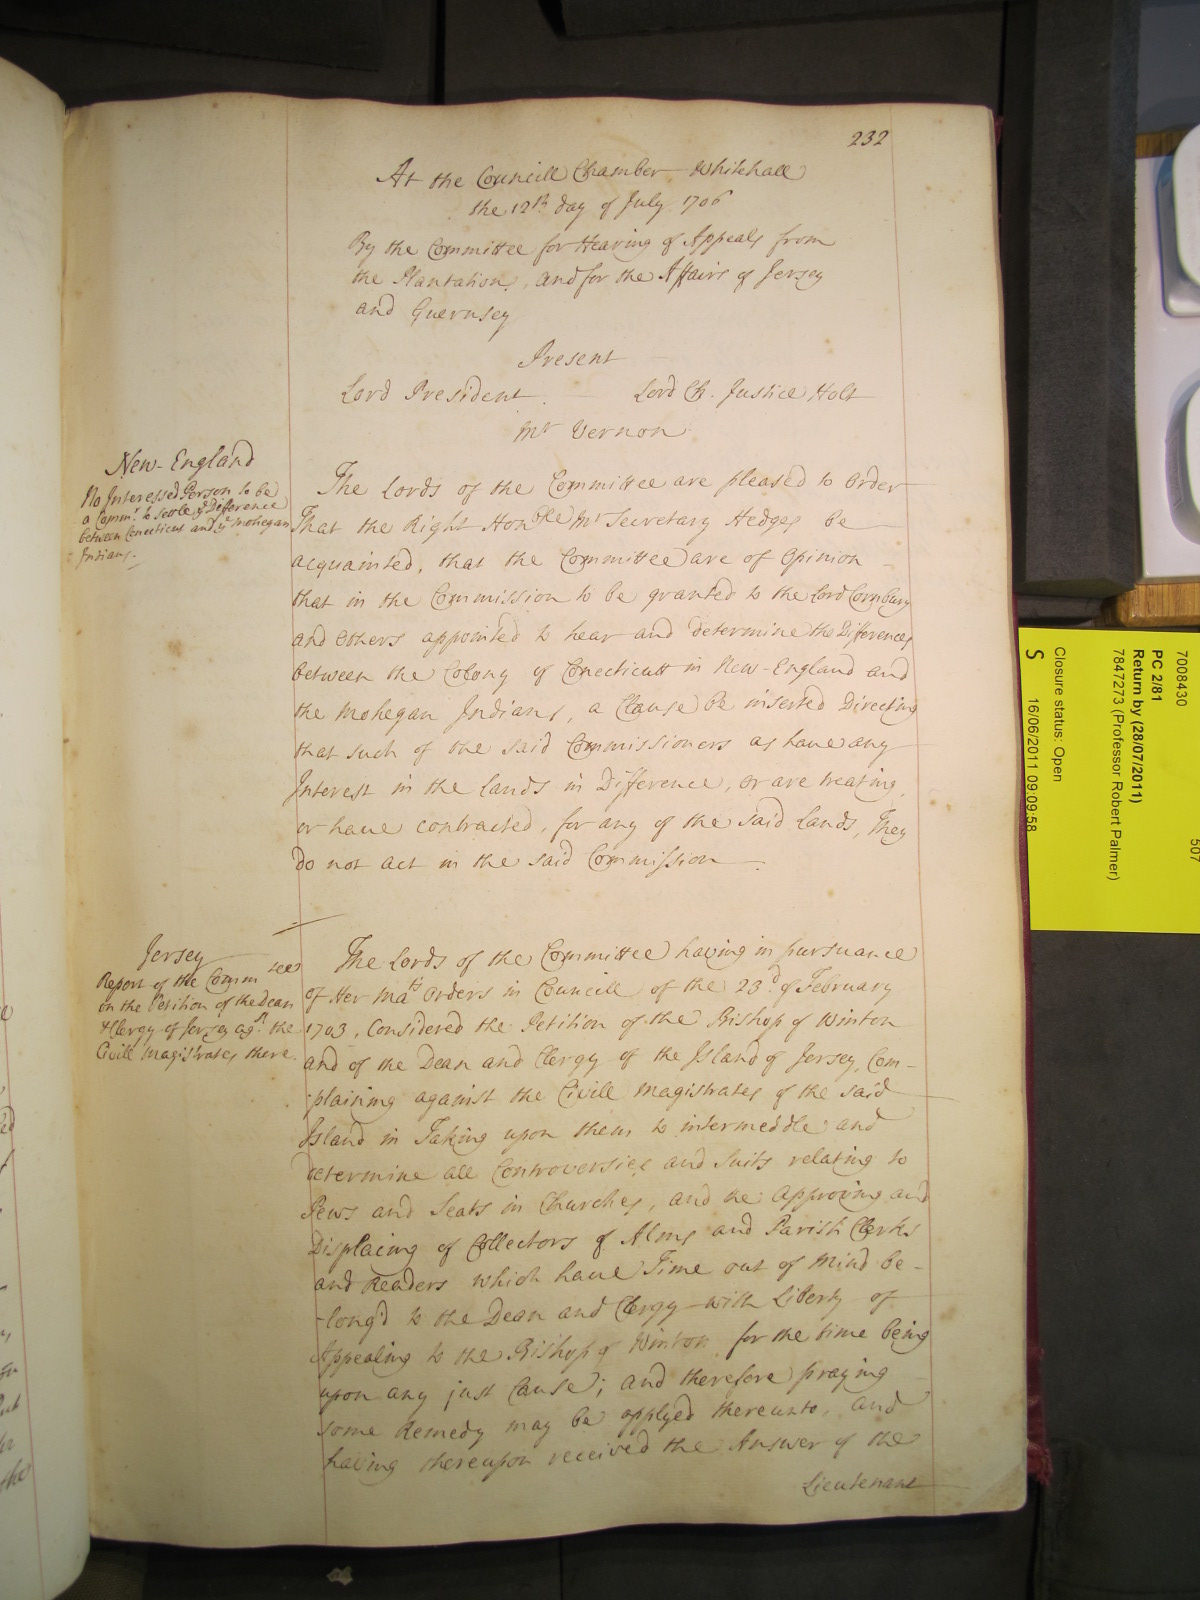 232
At the Councill Chamber Whitehall
the 12th day of July 1706
By the Committee for Hearing of Appeals from
the Plantations, and for the Affairs of Jersey
and Guernsey
Present
Lord President. Lord Ch. Justice Holt
Mr Vernon
New-England
No Interessed Person to be
a Commr. to settle ye Difference
between Conecticut and ye Mohegan
Indians.
The Lords of the Committee are pleased to Order
That the Right Honble Mr Secretary Hedges be
acquainted, that the Committee are of Opinion
that in the Commission to be granted to the Lord Cornbury
and others appointed to hear and determine the Differences
between the Colony of Conecticutt in New-England and
the Mohegan Indians, a Clause be inserted Directing
that such of the said Commissioners as have any
Interest in the Lands in Difference, or are treating,
or have contracted, for any of the said Lands, They
do not act in the said Commission.
Jersey
Report of the Commtee
on the Petition of the Dean
& Clergy of Jersey agst. the
Civill Magistrates there.
The Lords of the Committee having in pursuance
of Her Mats Orders in Councill of the 23d of February
1703, Considered the Petition of the Bishop of Winton
and of the Dean and Clergy of the Island of Jersey, Com-
-plaining against the Civill Magistrates of the said
Island in Taking upon them to intermeddle and
determine all Controversies and Suits relating to
Pews and Seats in Churches, and the Approving and
Displacing of Collectors of Alms and Parish Clerks
and Readers which have Time out of Mind be-
-long'd to the Dean and Clergy with Liberty of
Appealing to the Bishop of Winton for the time being
upon any just Cause; and therefore praying
some Remedy may be applyed thereunto, and
having thereupon received the Answer of the
Lieutenant
7008430
507
PC 2/81
Return by (28/07/2011)
7847273 (Professor Robert Palmer)
Closure status: Open
S 16/06/2011 09:09:58